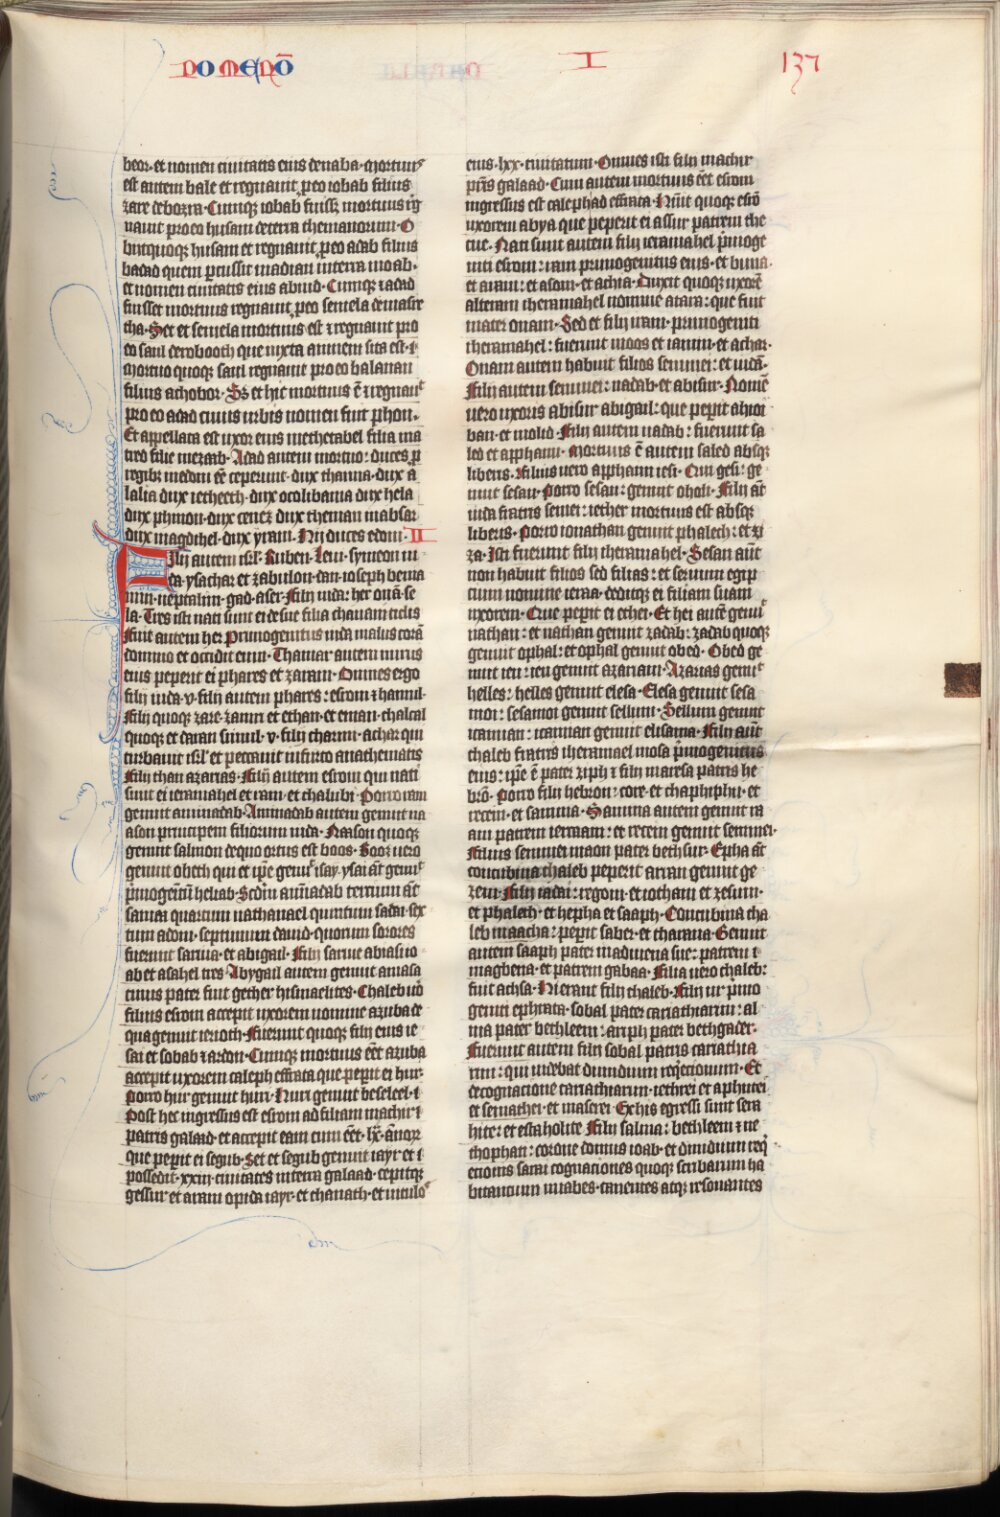 POMENŌ
I
137
beor· et nomen ciuitatis eius denaba· Mortuus
est autem bale et regnauit p̱ eo iobab filius
zare debozra· Cumq̄ iobab fuisset mortuus reg
nauit pro eo husam deterra themanorum· O
biitquoq̄ husam et regnauit p̱ eo adab filius
badad quem ꝑcussit madian interra moab·
et nomen ciuitatis eius abiud· Cumq̄ ⁊ adad
fuisset mortuus regnauit p̱ eo semela demasre
cha· Set et semela mortuus est ⁊ regnauit pro
eo saul derobooth que iuxta amnem sita est·
Mortuo quoq̄ saul regnauit pro eo balanan
filius achobor· Sȝ et hic mortuus ē ⁊ regnauᵗ
pro eo adad cuius urbis nomen fuit phou·
Et appellata est uxor eius methetabel filia ma
tred filie mezaab· Adad autem mortuo: duces ꝓ
regibȝ inedom eē ceperunt· dux thanna· dux a
lalia dux ietheth· dux oolibama dux hela
dux phinon· dux cenez dux theman mabsar
dux magdihel· dux yram· Hij duces edom· II
Filij autem isrl̄· Ruben· Leui· symeon iu
da· ysachar et zabulon· dan· ioseph benia
min· neptalim· gad· aser· Filij iuda: her onā se
la· Tres isti nati sunt ei desue filia chananitidis
Fuit autem her primogenitus iuda malus corā
domino et occidit eum· Thamar autem nurus
eius peperit ei phares et zaram· Omnes ergo
filij iuda· v· filij autem phares: esrom ⁊ hamul·
Filij quoq̄ zare· zamri et ethan· et eman· chalcal
quoq̄ et daran simul· v· filij charmi· achar qui
turbauit isrl̄· et peccauit infurto anathematis
Filij than azarias· Filij autem esrom qui nati
sunt ei ieramahel et ram· et chalubi· Porro ram
genuit aminadab· Aminadab autem genuit na
ason principem filiorum iuda· Naason quoq̄
genuit salmon dequo ortus est boos· Booz uero
genuit obeth qui et ip̄e genuᵗ isay· ysai aūt genuiᵗ
pͥmogenitū heliab· Scd̄m aminadab tercium aūt
samaa quartum nathanael quintum sadai· sex
tum adom· septimum dauid· quorum sorores
fuerunt saruia· et abigail· Filij saruie abisai io
ab et asahel tres· Abygail autem genuit amasa
cuius pater fuit gether hismaelites· Chaleb uō
filius esrom accepit uxorem nomine azuba de
qua genuit ierioth· Fuerunt quoq̄ filij eius ie
sai et sobab ⁊ ardon· Cumq̄ mortuus eēt azuba
accepit uxorem caleph effrata que peꝑit ei hur·
Porro hur genuit huri· Huri genuit beseleel·
Post hec ingressus est esrom ad filiam machir
patris galaad· et accepit eam cum eēt· lx· ānoꝝ
que peꝑit ei segub· Set et segub genuit iayr et
possedit· xxiij· ciuitates interra galaad· cepitq̄
gessur et aram opida iayr· et chanath· et uiculo
eius· lxx· ciuitatum· Omnes isti filij machir
pr̄is galaad· Cum autem mortuus eēt esrom
ingressus est caleph ad effrata· Hūit quoq̄ esrō
uxorem abya que peperit ei assur patrem the
cue· Nati sunt autem filij ieramahel pͥmoge
niti esrom: ram primogenitus eius· et buna·
et aram: et asom· et achia· Duxit quoq̄ uxorē
alteram theramahel nomine atara: que fuit
mater onam· Sed et filij ram· primogeniti
theramahel: fuerunt moos et iamin· et achar·
Onam autem habuit filios semmei: et iudā·
Filij autem semmei: nadab· et abisur· Nomē
uero uxoris abisur abigail: que peꝑit ahoi
ban· et molid· Filij autem nadab: fuerunt sa
led et apphaim· Mortuus ē autem saled absq̄
liberis· Filius uero apphaim iesi· Qui gesi: ge
nuit sesan· Porro sesan: genuit oholi· Filij aūt
iuda fratris semei: iether mortuus est absq̄
liberis· Porro ionathan genuit phalech: et zi
za· Isti fuerunt filij theramahel· Sesan aūt
non habuit filios sed filias: et seruum egip
cium nomine ieraa· deditq̄ ei filiam suam
uxorem· Que peꝑit ei ethei· Et hei autē genuiᵗ
nathan: et nathan genuit zadab: zadab quoq̄
genuit ophal: et ophal genuit obed· Obed ge
nuit ieu: ieu genuit azariam· Azarias genuiᵗ
helles: helles genuit elesa· Elesa genuit sesa
moi: sesamoi genuit sellum· Sellum genuit
icamian: icamian genuit elisama· Filij aūt
chaleb fratris theramael mosa pͥmogenitus
eius: ip̄e ē pater ziph ⁊ filij maresa patris he
brō· Porro filij hebron: core· et chaphiphu· et
recem· et samma· Samma autem genuit ra
am patrem iercaam: et recem genuit semmei·
Filius semmei maon pater beth sur· Epha aūt
concubina chaleb peperit arran genuit ge
zem· Filij iadai: regom· et iotham et zesum·
et phalech· et hepha et saaph· Concubina cha
leb maacha: peꝑit saber· et tharana· Genuit
autem saaph pater madmena sue: patrem
magbena· et patrem gabaa· Filia uero chaleb:
fuit achsa· Hi erant filij chaleb· Filij ur pͥmo
geniti ephrata· sobal pater cariathiarim: al
ma pater bethleem: ariph pater bethgader·
Fuerunt autem filij sobal patris cariathia
rim: qui uidebat dimidium req̄ecionum· Et
decognacione cariathiarim· iethrei et aphutei
et semathei· et maserei· Exhis egressi sunt sera
hite: et estaholite Filij salma: bethleem ⁊ ne
thophati: corone domus ioab· et dimidium req̄
ecionis sarai cognaciones quoq̄ scribarum ha
bitancium iniabes· canentes atq̄ resonantes